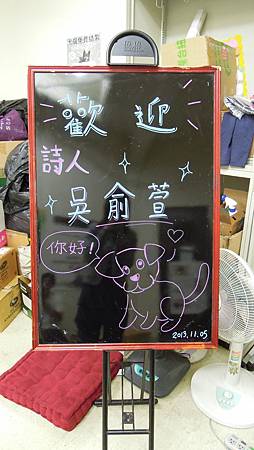 歡迎
詩人
吳俞萱
你好！
2013.11.05